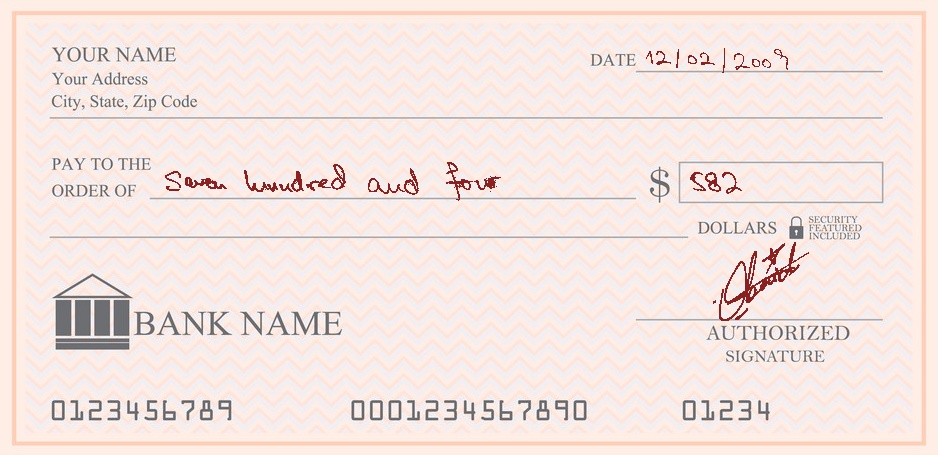 YOUR NAME
Your Address
City, State, Zip Code
DATE 12/02/2009
PAY TO THE
ORDER OF Seven hundred and four $ 582
DOLLARS SECURITY FEATURED INCLUDED
BANK NAME
AUTHORIZED
SIGNATURE
0123456789 0001234567890 01234